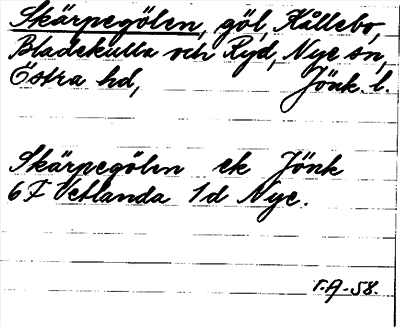 Skärpegölen, göl, Kållebo,
Bladekulla och Ryd, Nye sn,
Östra hd, Jönk. l.
Skärpegölen ek Jönk
6F Vetlanda 1d Nye.
T.A-58.